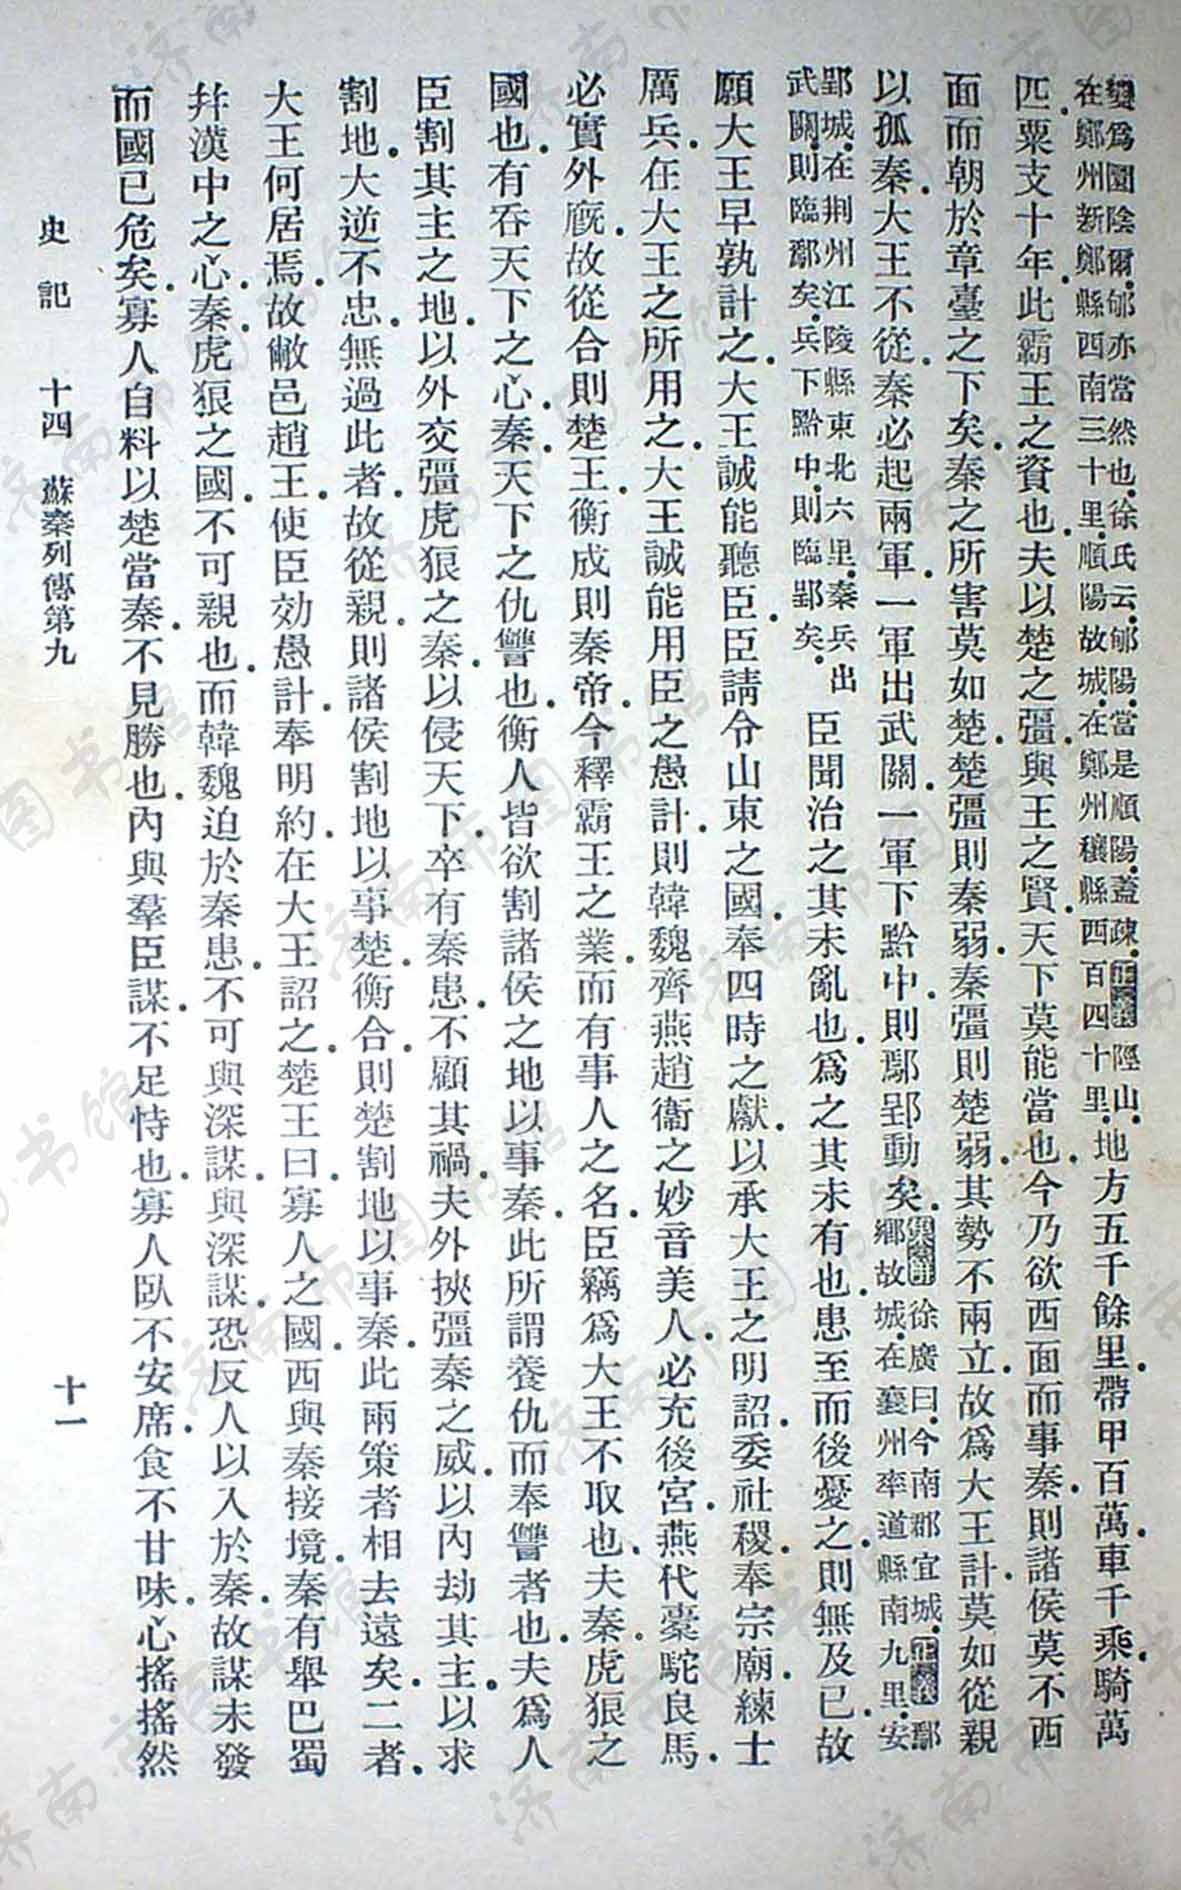 變爲圜陰爾。郇亦當然也。徐氏云。郇陽。當是順陽。蓋疎。正義陘山。
在鄭州新鄭縣西南三十里。順陽故城。在鄭州穰縣西百四十里。
地方五千餘里。帶甲百萬。車千乘。騎萬
匹。粟支十年。此霸王之資也。夫以楚之彊。與王之賢。天下莫能當也。今乃欲西面而事秦。則諸侯莫不西
面而朝於章臺之下矣。秦之所害莫如楚。楚彊則秦弱。秦彊則楚弱。其勢不兩立。故爲大王計。莫如從親
以孤秦。大王不從。秦必起兩軍。一軍出武關。一軍下黔中。則鄢郢動矣。
集解徐廣曰。今南郡宜城。正義鄢
鄉故城。在襄州率道縣南九里。安
郢城。在荆州江陵縣東北六里。秦兵出
武關。則臨鄢矣。兵下黔中。則臨郢矣。
臣聞治之其未亂也。爲之其未有也。患至而後憂之。則無及已。故
願大王早孰計之。大王誠能聽臣。臣請令山東之國。奉四時之獻。以承大王之明詔。委社稷。奉宗廟。練士
厲兵。在大王之所用之。大王誠能用臣之愚計。則韓魏齊燕趙衞之妙音美人。必充後宮。燕代橐駝良馬。
必實外廐。故從合則楚王。衡成則秦帝。今釋霸王之業。而有事人之名。臣竊爲大王不取也。夫秦。虎狼之
國也。有吞天下之心。秦。天下之仇讐也。衡人皆欲割諸侯之地以事秦。此所謂養仇而奉讐者也。夫爲人
臣。割其主之地。以外交彊虎狼之秦。以侵天下。卒有秦患。不顧其禍。夫外挾彊秦之威。以內劫其主。以求
割地。大逆不忠。無過此者。故從親。則諸侯割地以事楚。衡合。則楚割地以事秦。此兩策者相去遠矣。二者。
大王何居焉。故敝邑趙王。使臣効愚計。奉明約。在大王詔之。楚王曰。寡人之國。西與秦接境。秦有舉巴蜀
幷漢中之心。秦。虎狼之國。不可親也。而韓魏迫於秦患。不可與深謀。與深謀。恐反人以入於秦。故謀未發
而國已危矣。寡人自料以楚當秦。不見勝也。內與羣臣謀。不足恃也。寡人臥不安席。食不甘味。心搖搖然
史記　十四　蘇秦列傳第九　十一